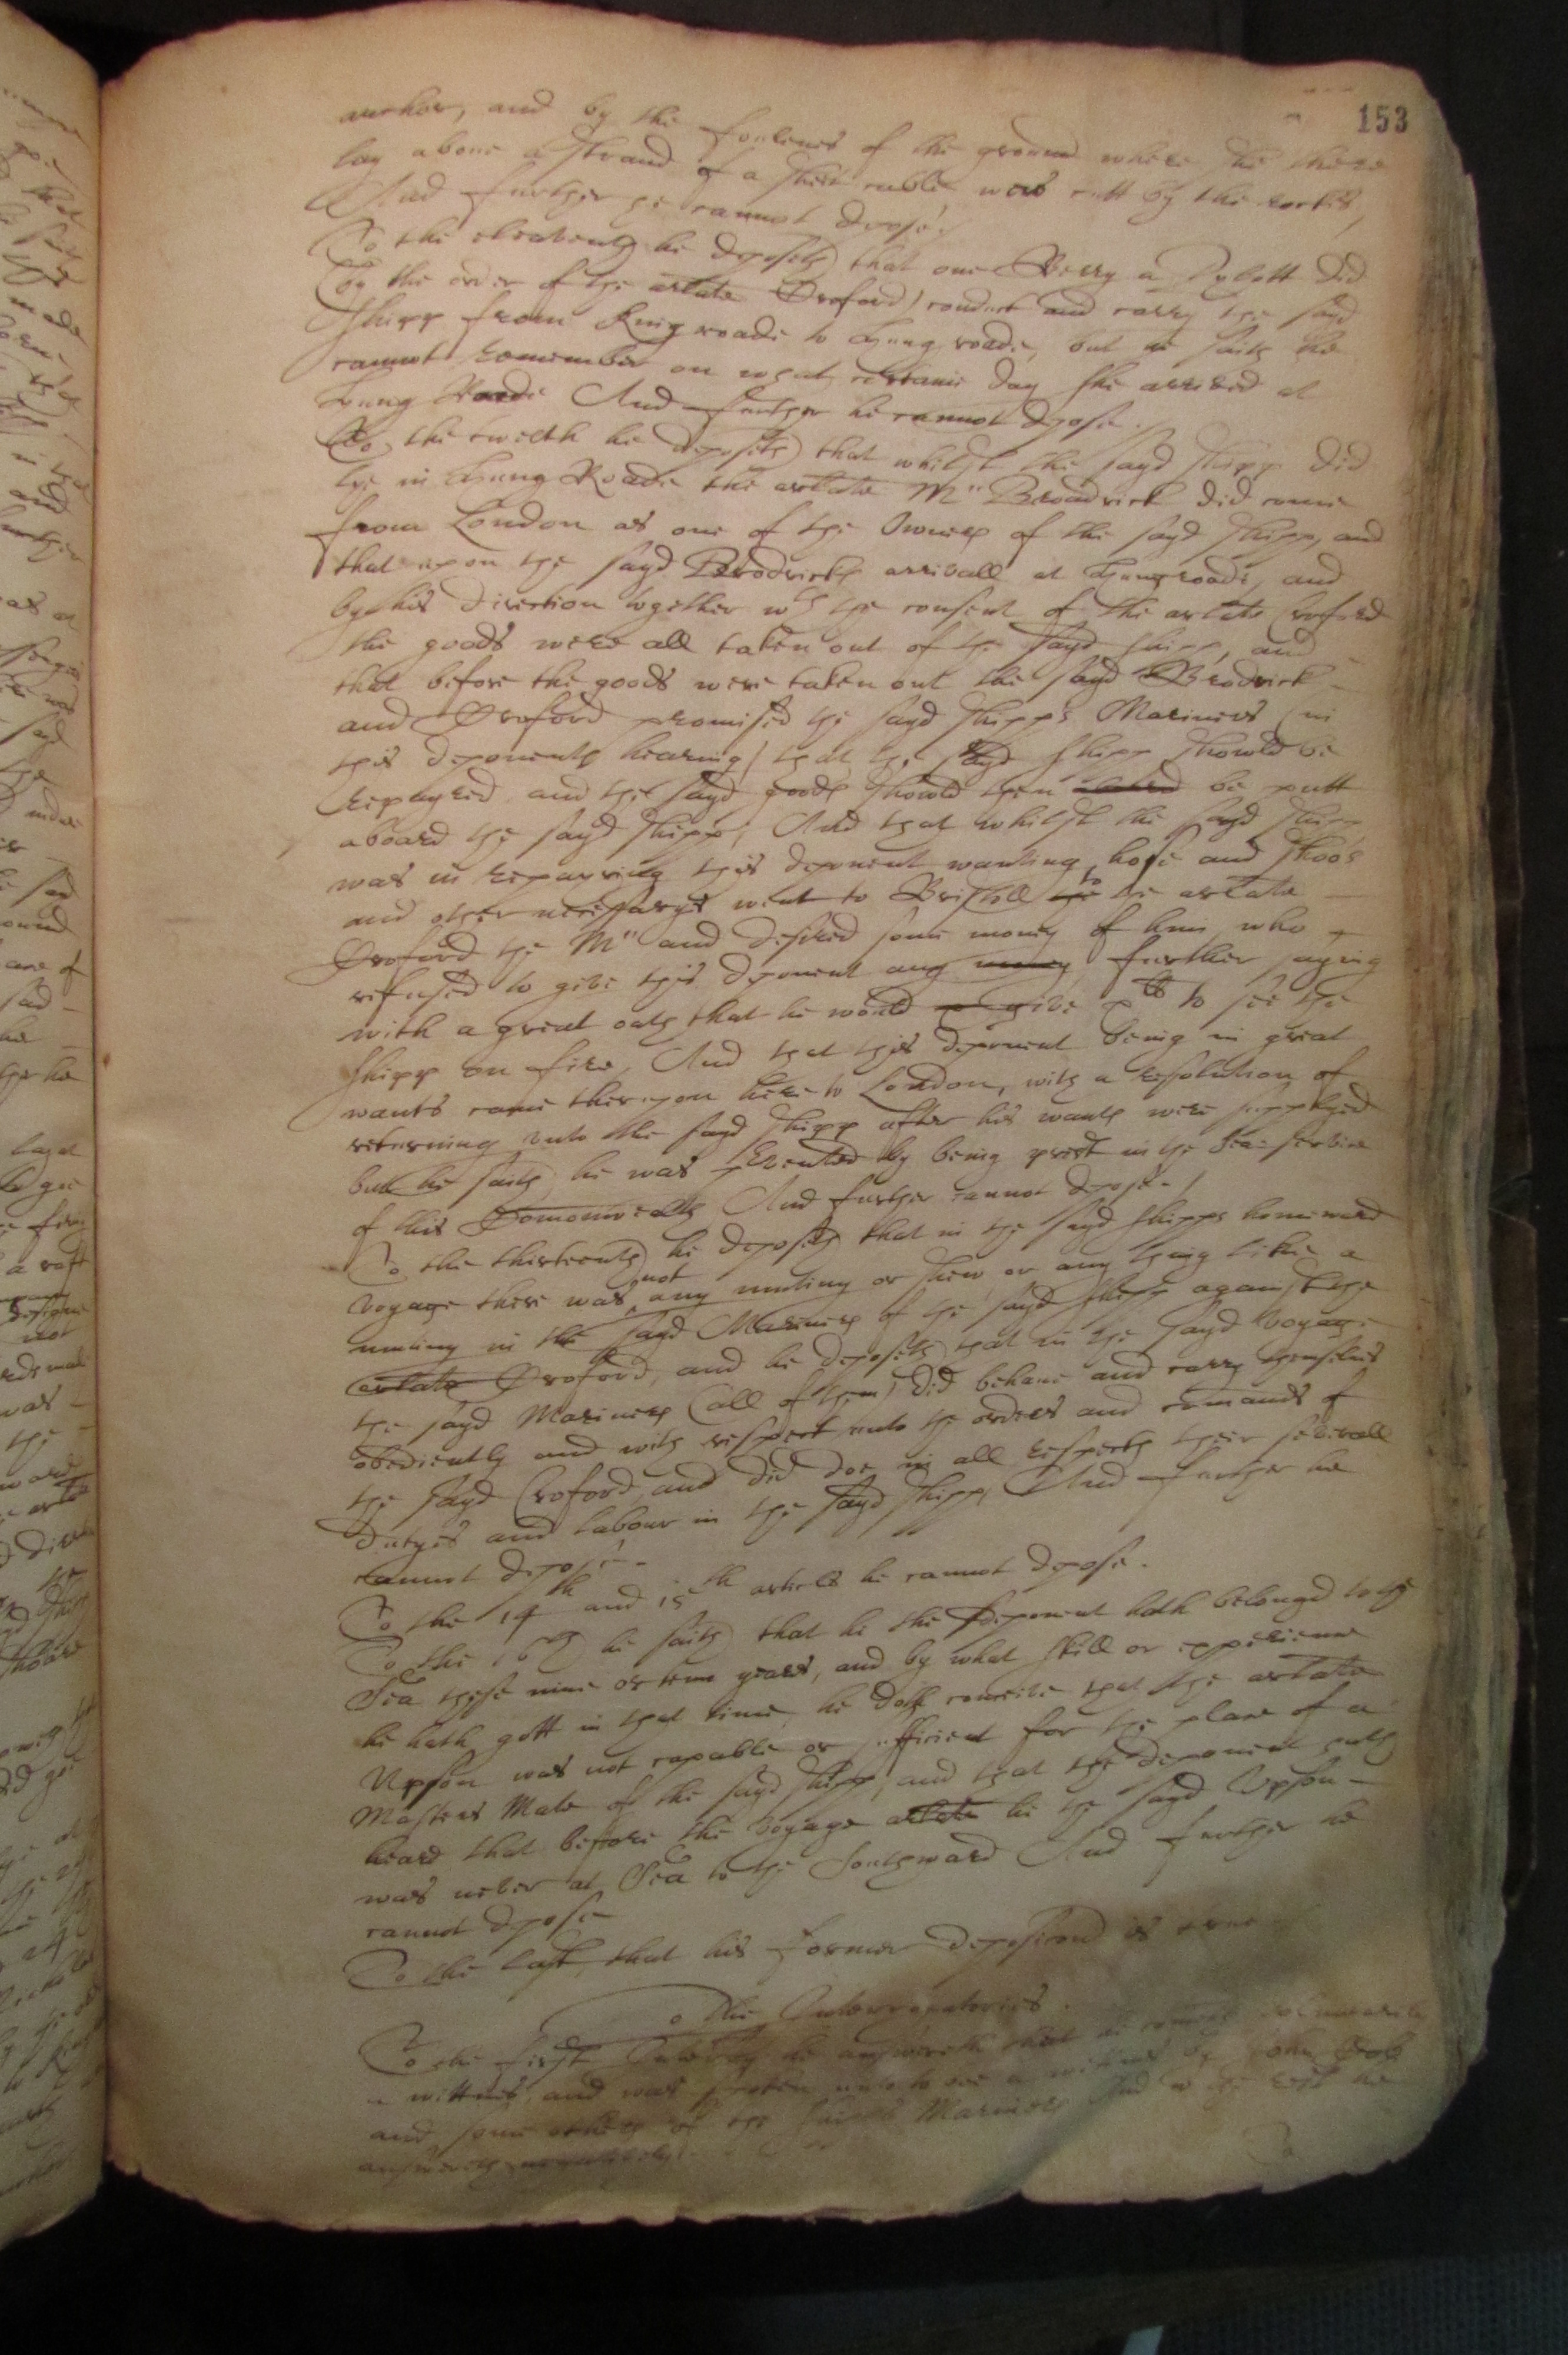 153
anchor, and by the foulenes of the ground where she there
lay above a strand of a sheet cable was cutt by the rockes,
And further he cannot depose.
To the eleaventh he deposeth that one Berry a Pylott did
(by the order of the arlate Croford) conduct and carry the sayd
shipp from Kingroade to Hung roade, but he saith he
cannot remember on what certaine day she arrived at
Hung Roade And further he cannot depose.
To the twelth he deposeth that whilst the sayd shipp did
lye in Hung Roade the arlate Mr Broadrick did come
from London as one of the Owners of the sayd shipp, and
that upon the sayd Brodricks arrivall at Hungroade, and
by his direction together wth the consent of the arlate Croford
the goods were all taken out of the sayd shipp, and
that before the goods were taken out the sayd Brodrick
and Croford promised the sayd shipps Mariners (in
this deponents hearing) that the sayd shipp should be
repayred and the sayd goods should then be putt
aboard the sayd shipp, And that whilst the sayd shipp
was in repayring this deponent wanting hose and shoos
and other necessarys went to Bristoll to the arlate
Croford the Mr and desired some money of him, who
refused to give this deponent any money further saying
with a great oath that he would give to see the
shipp on fire, And that this deponent being in great
wants came thereupon here to London, with a resolution of
returning unto the sayd shipp after his wants were supplyed
but he saith he was prevented by being prest in the sea-service
of this Comonwealth And further cannot depose.
To the thirteenth he deposeth that in the sayd shipps homeward
voyage there was not any mutiny or shew or any thing like a
mutiny in the sayd Mariners of the sayd shipp against the
arlate Croford, and he deposeth that in the sayd voyage
the sayd Mariners (all of them) did behave and carry themselves
obediently and with respect unto the orders and comands of
the sayd Croford, and did doe in all respects their severall
dutyes and labour in the sayd shipp, And further he
cannot depose.
To the 14th and 15th articles he cannot depose.
To the 16th he saith that he the deponent hath belonged to the
Sea these nine or tenn yeares, and by what skill or experience
he hath gott in that time, he doth conceive that the arlate
Upson was not capable or sufficient for the place of a
Masters Mate of the sayd shipp, and that the deponent hath
heard that before the voyage arlate he the sayd Upson
was never at Sea to the Southward And further he
cannot depose
To the last, that his former deposicon is true
To the Interrogatories.
To the first Interry he answereth that he cometh voluntarily
a wittnes, and was spoken unto to bee a wittnes by John
and some others of the shipps Mariners And to the rest he
answereth negatively.